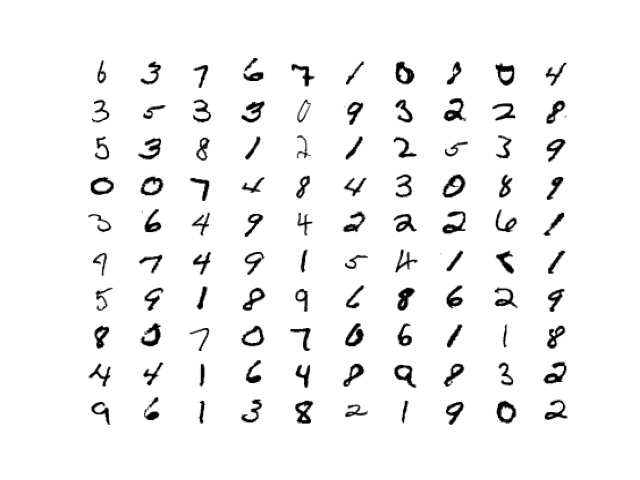 6 3 7 6 7 1 0 8 0 4
3 5 3 3 0 9 3 2 2 8
5 3 8 1 2 1 2 5 3 9
0 0 7 4 8 4 3 0 8 9
3 6 4 9 4 2 2 2 6 1
9 7 4 9 1 5 4 1 5 1
5 9 1 8 9 6 8 6 2 9
8 0 7 0 7 0 6 1 1 8
4 4 1 6 4 8 9 8 3 2
9 6 1 3 8 2 1 9 0 2